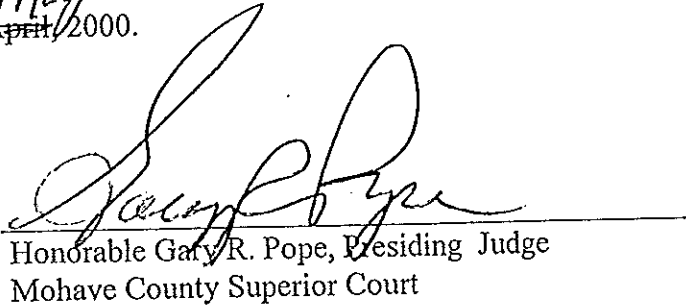 May
April, 2000.
Gary R Pope
Honorable Gary R. Pope, Presiding Judge
Mohave County Superior Court